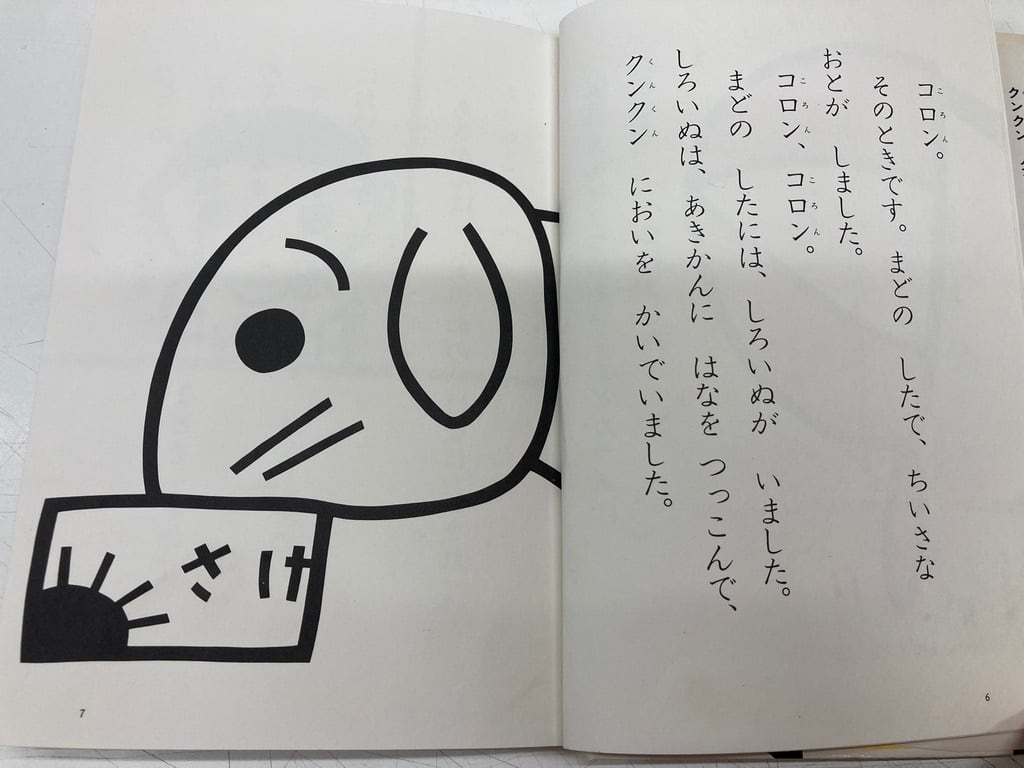 コロン。
ころん
そのときです。まどの したで、ちいさな
おとが しました。
コロン、コロン。
ころん ころん
まどの したには、しろいぬが いました。
しろいぬは、あきかんに はなを つっこんで、
クンクン においを かいでいました。
くんくん
6
さけ
7
クンクン